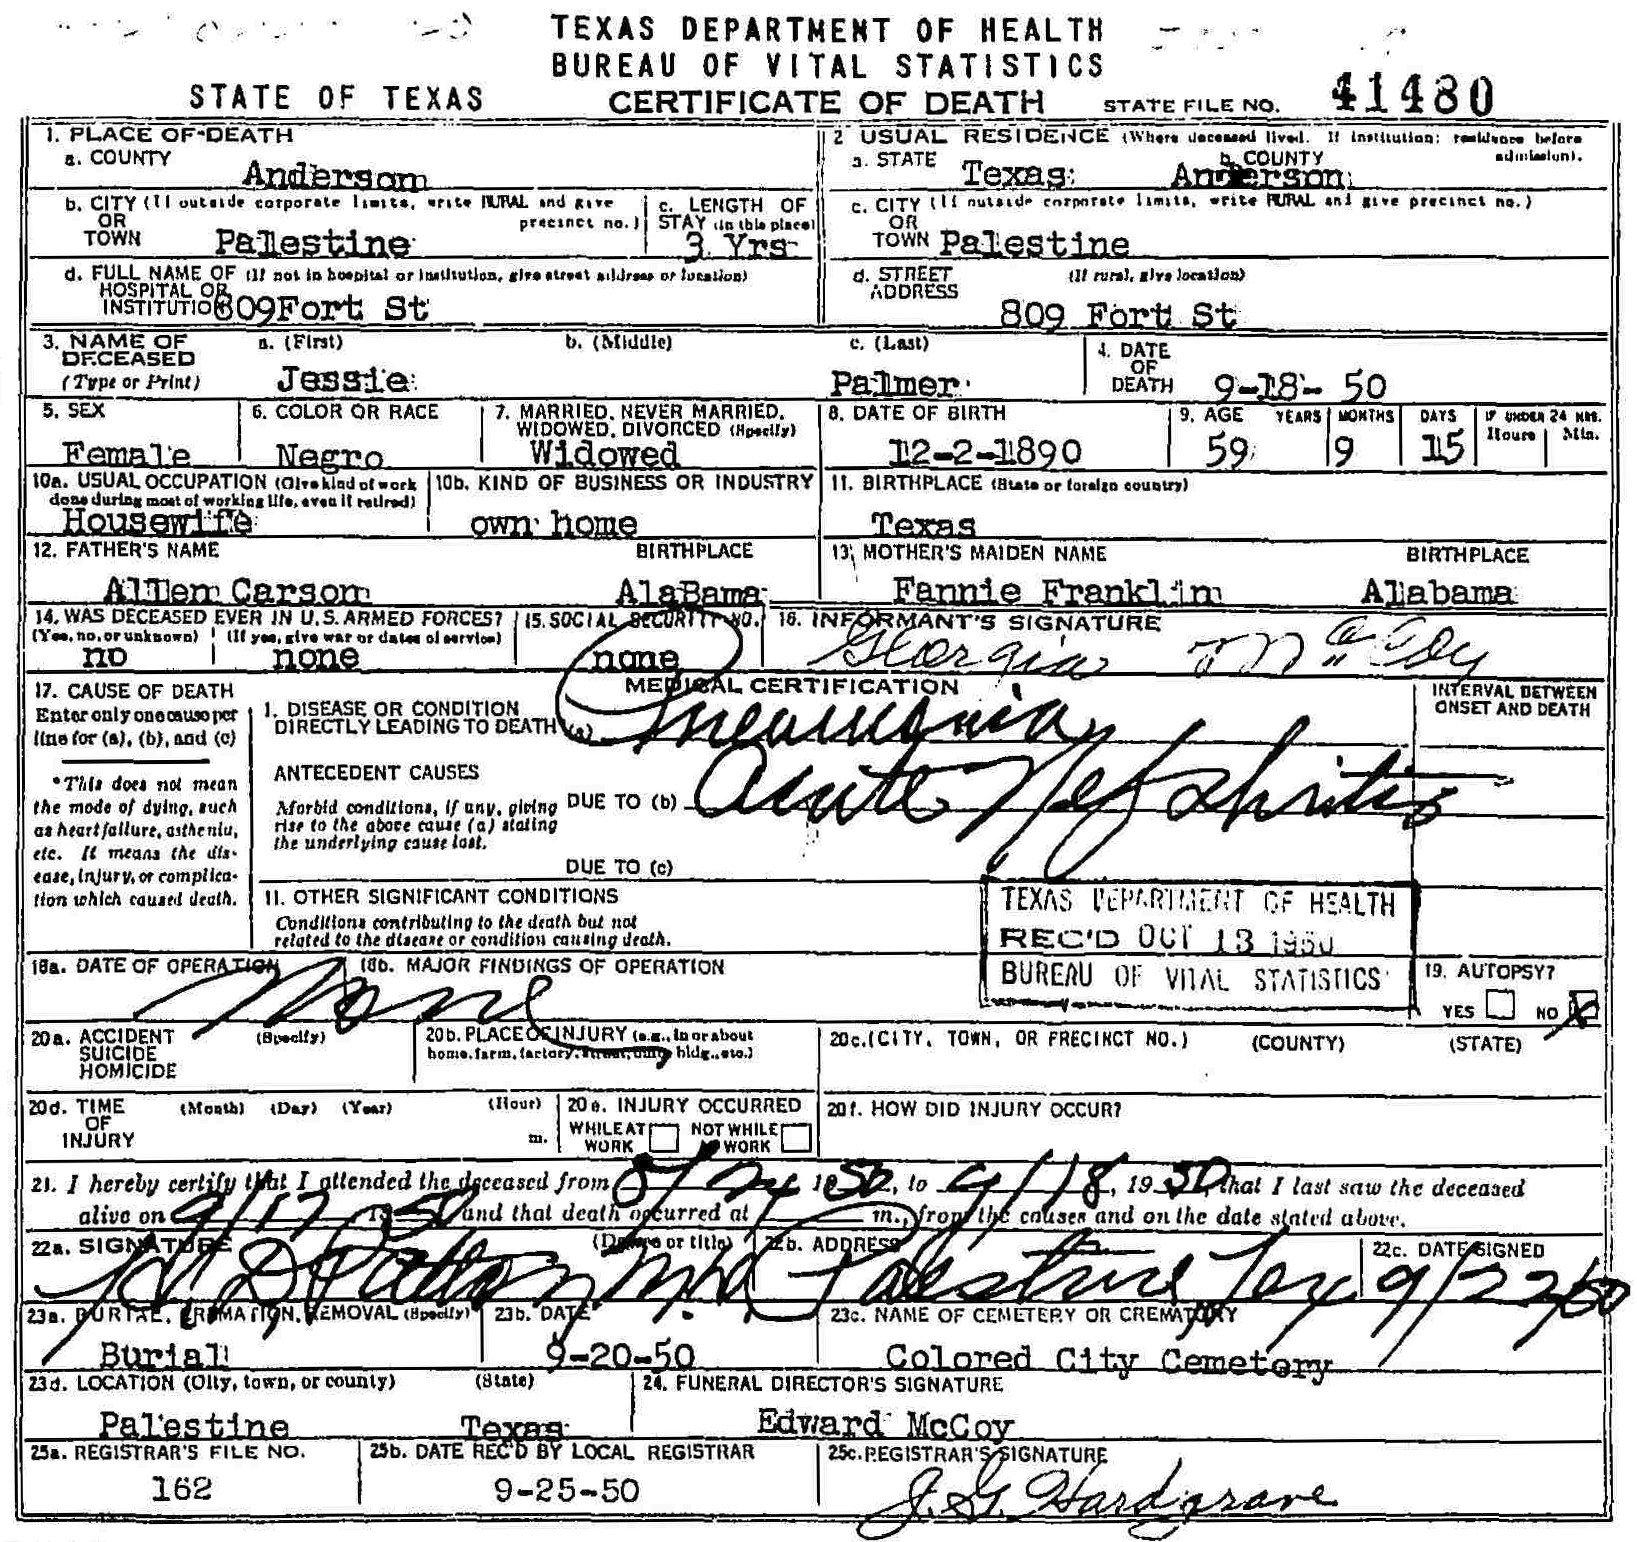 TEXAS DEPARTMENT OF HEALTH
BUREAU OF VITAL STATISTICS
STATE OF TEXAS CERTIFICATE OF DEATH STATE FILE NO. 41480
1. PLACE OF DEATH
a. COUNTY Anderson
2 USUAL RESIDENCE (Where deceased lived. If institution: residence before admission).
a. STATE Texas b. COUNTY Anderson
b. CITY (If outside corporate limits, write RURAL and give precinct no.) OR TOWN Palestine
c. LENGTH OF STAY (in this place) 3 Yrs
c. CITY (If outside corporate limits, write RURAL and give precinct no.) OR TOWN Palestine
d. FULL NAME OF (If not in hospital or institution, give street address or location) HOSPITAL OR INSTITUTION 809 Fort St
d. STREET ADDRESS (If rural, give location) 809 Fort St
3. NAME OF DECEASED (Type or Print) a. (First) Jessie b. (Middle) c. (Last) Palmer
4. DATE OF DEATH 9-18-50
5. SEX Female
6. COLOR OR RACE Negro
7. MARRIED, NEVER MARRIED, WIDOWED, DIVORCED (Specify) Widowed
8. DATE OF BIRTH 12-2-1890
9. AGE YEARS 59 MONTHS 9 DAYS 15 IF UNDER 24 HRS. Hours Min.
10a. USUAL OCCUPATION (Give kind of work done during most of working life, even if retired) Housewife
10b. KIND OF BUSINESS OR INDUSTRY own home
11. BIRTHPLACE (State or foreign country) Texas
12. FATHER'S NAME Allen Carson BIRTHPLACE AlaBama
13. MOTHER'S MAIDEN NAME Fannie Franklin BIRTHPLACE Alabama
14. WAS DECEASED EVER IN U.S. ARMED FORCES? (Yes, no, or unknown) no (If yes, give war or dates of service) none
15. SOCIAL SECURITY NO. none
16. INFORMANT'S SIGNATURE Georgia McCoy
17. CAUSE OF DEATH
Enter only one cause per line for (a), (b), and (c)
*This does not mean the mode of dying, such as heart failure, asthenia, etc. It means the disease, injury, or complication which caused death.
MEDICAL CERTIFICATION
INTERVAL BETWEEN ONSET AND DEATH
I. DISEASE OR CONDITION DIRECTLY LEADING TO DEATH (a) Pneumonia
ANTECEDENT CAUSES
Morbid conditions, if any, giving rise to the above cause (a) stating the underlying cause last.
DUE TO (b) Acute Nephritis
DUE TO (c)
11. OTHER SIGNIFICANT CONDITIONS
Conditions contributing to the death but not related to the disease or condition causing death.
TEXAS DEPARTMENT OF HEALTH
REC'D OCT 13 1950
BUREAU OF VITAL STATISTICS
18a. DATE OF OPERATION None
18b. MAJOR FINDINGS OF OPERATION
19. AUTOPSY? YES NO X
20a. ACCIDENT SUICIDE HOMICIDE (Specify)
20b. PLACE OF INJURY (e.g., in or about home, farm, factory, street, office bldg., etc.)
20c. (CITY, TOWN, OR PRECINCT NO.) (COUNTY) (STATE)
20d. TIME OF INJURY (Month) (Day) (Year) (Hour) m.
20e. INJURY OCCURRED WHILE AT WORK NOT WHILE AT WORK
20f. HOW DID INJURY OCCUR?
21. I hereby certify that I attended the deceased from 8/24 1950, to 9/18, 1950, that I last saw the deceased
alive on 9/17 1950 and that death occurred at m., from the causes and on the date stated above.
22a. SIGNATURE (Degree or title) Patton M.D.
22b. ADDRESS Palestine Tex
22c. DATE SIGNED 9/22/50
23a. BURIAL, CREMATION, REMOVAL (Specify) Burial
23b. DATE 9-20-50
23c. NAME OF CEMETERY OR CREMATORY Colored City Cemetory
23d. LOCATION (City, town, or county) Palestine (State) Texas
24. FUNERAL DIRECTOR'S SIGNATURE Edward McCoy
25a. REGISTRAR'S FILE NO. 162
25b. DATE REC'D BY LOCAL REGISTRAR 9-25-50
25c. REGISTRAR'S SIGNATURE J. G. Hardgrave